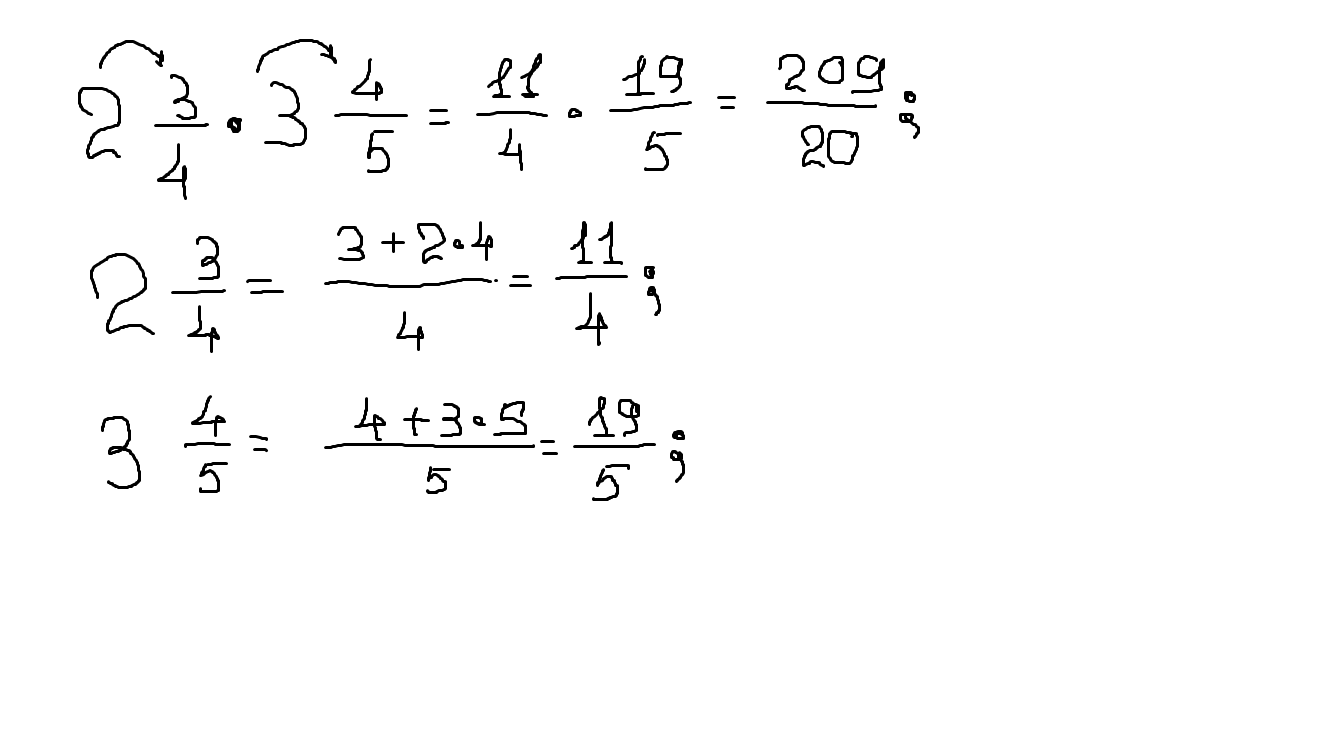 2 3/4 · 3 4/5 = 11/4 · 19/5 = 209/20 ;
2 3/4 = (3+2·4)/4 = 11/4 ;
3 4/5 = (4+3·5)/5 = 19/5 ;